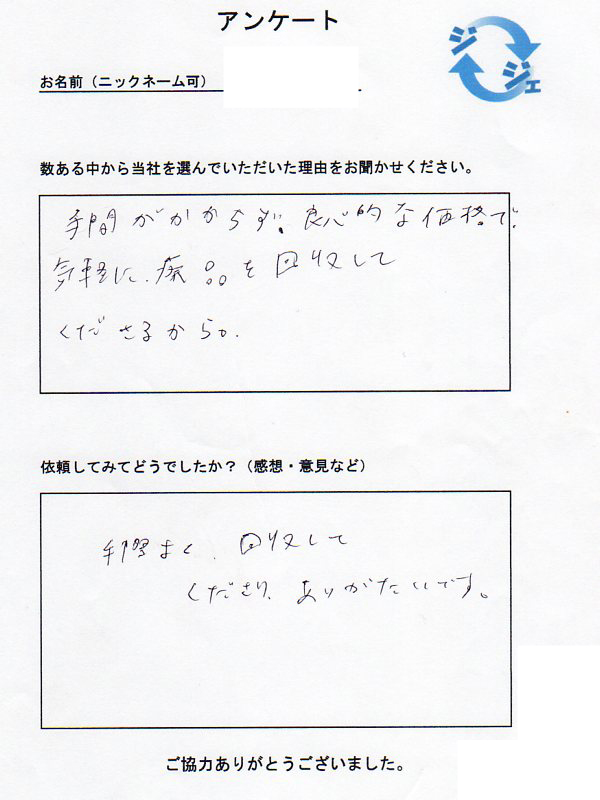 アンケート
ジジェ
お名前（ニックネーム可）
数ある中から当社を選んでいただいた理由をお聞かせください。
手間がかからず、良心的な価格で、
気軽に、廃品を回収して
くださるから。
依頼してみてどうでしたか？（感想・意見など）
手際よく、回収して
くださり、ありがたいです。
ご協力ありがとうございました。